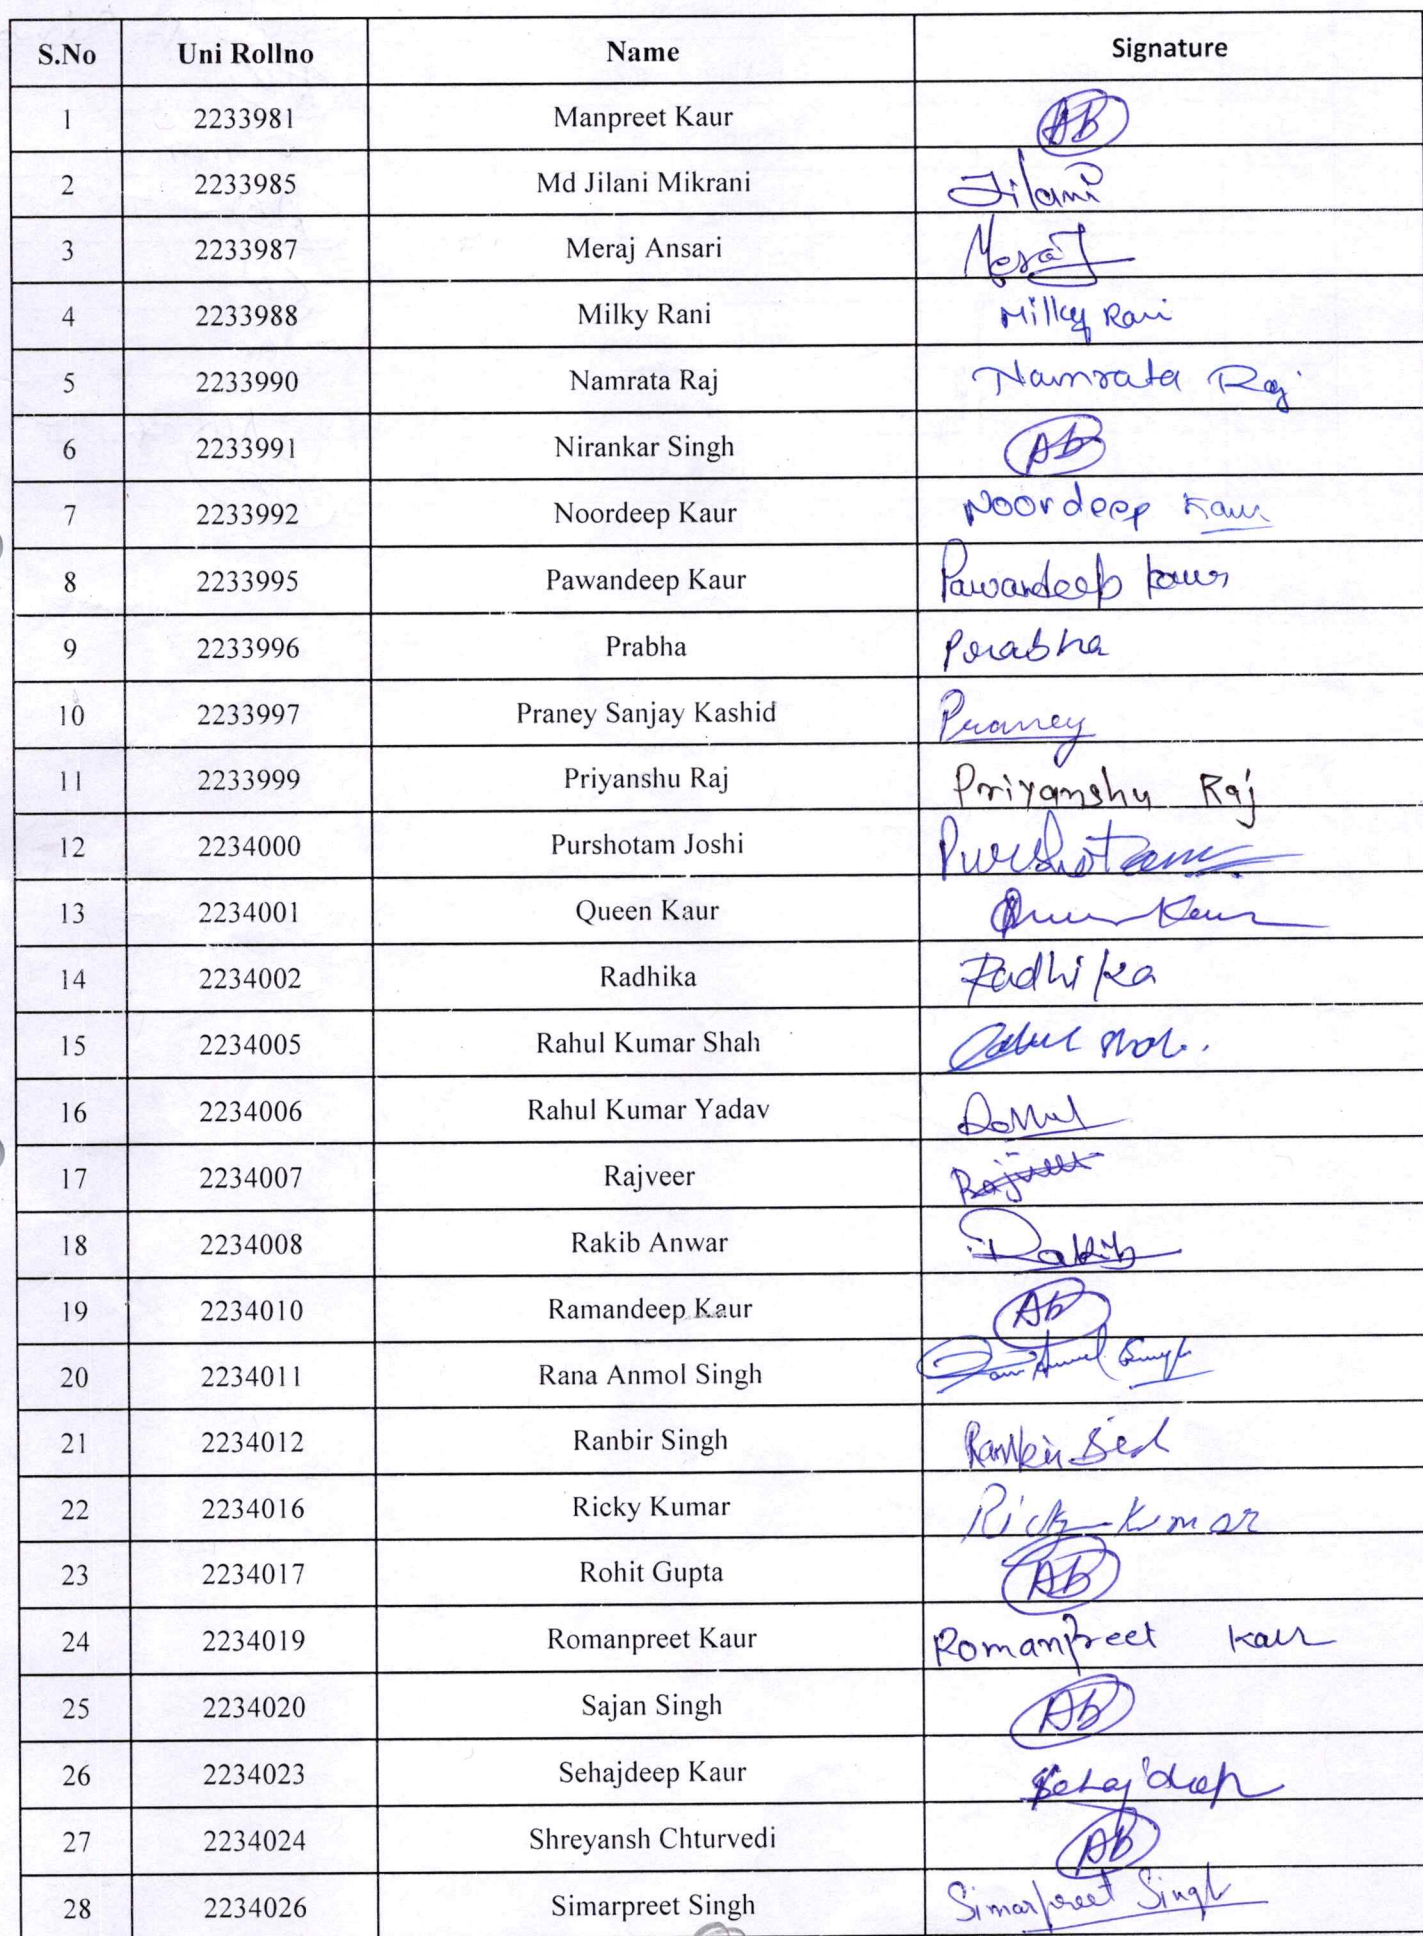 S.No Uni Rollno Name Signature
1 2233981 Manpreet Kaur AB
2 2233985 Md Jilani Mikrani Jilani
3 2233987 Meraj Ansari Meraj
4 2233988 Milky Rani Milky Rani
5 2233990 Namrata Raj Namrata Raj
6 2233991 Nirankar Singh Ab
7 2233992 Noordeep Kaur Noordeep Kaur
8 2233995 Pawandeep Kaur Pawandeep kaur
9 2233996 Prabha Prabha
10 2233997 Praney Sanjay Kashid Praney
11 2233999 Priyanshu Raj Priyanshu Raj
12 2234000 Purshotam Joshi Purshotam
13 2234001 Queen Kaur Queen Kaur
14 2234002 Radhika Radhika
15 2234005 Rahul Kumar Shah Rahul Shah.
16 2234006 Rahul Kumar Yadav Rahul
17 2234007 Rajveer Rajveer
18 2234008 Rakib Anwar Rakib
19 2234010 Ramandeep Kaur Ab
20 2234011 Rana Anmol Singh Rana Anmol Singh
21 2234012 Ranbir Singh Ranbir
22 2234016 Ricky Kumar Ricky Kumar
23 2234017 Rohit Gupta Ab
24 2234019 Romanpreet Kaur Romanpreet Kaur
25 2234020 Sajan Singh Ab
26 2234023 Sehajdeep Kaur Sehajdeep
27 2234024 Shreyansh Chturvedi Ab
28 2234026 Simarpreet Singh Simarpreet Singh